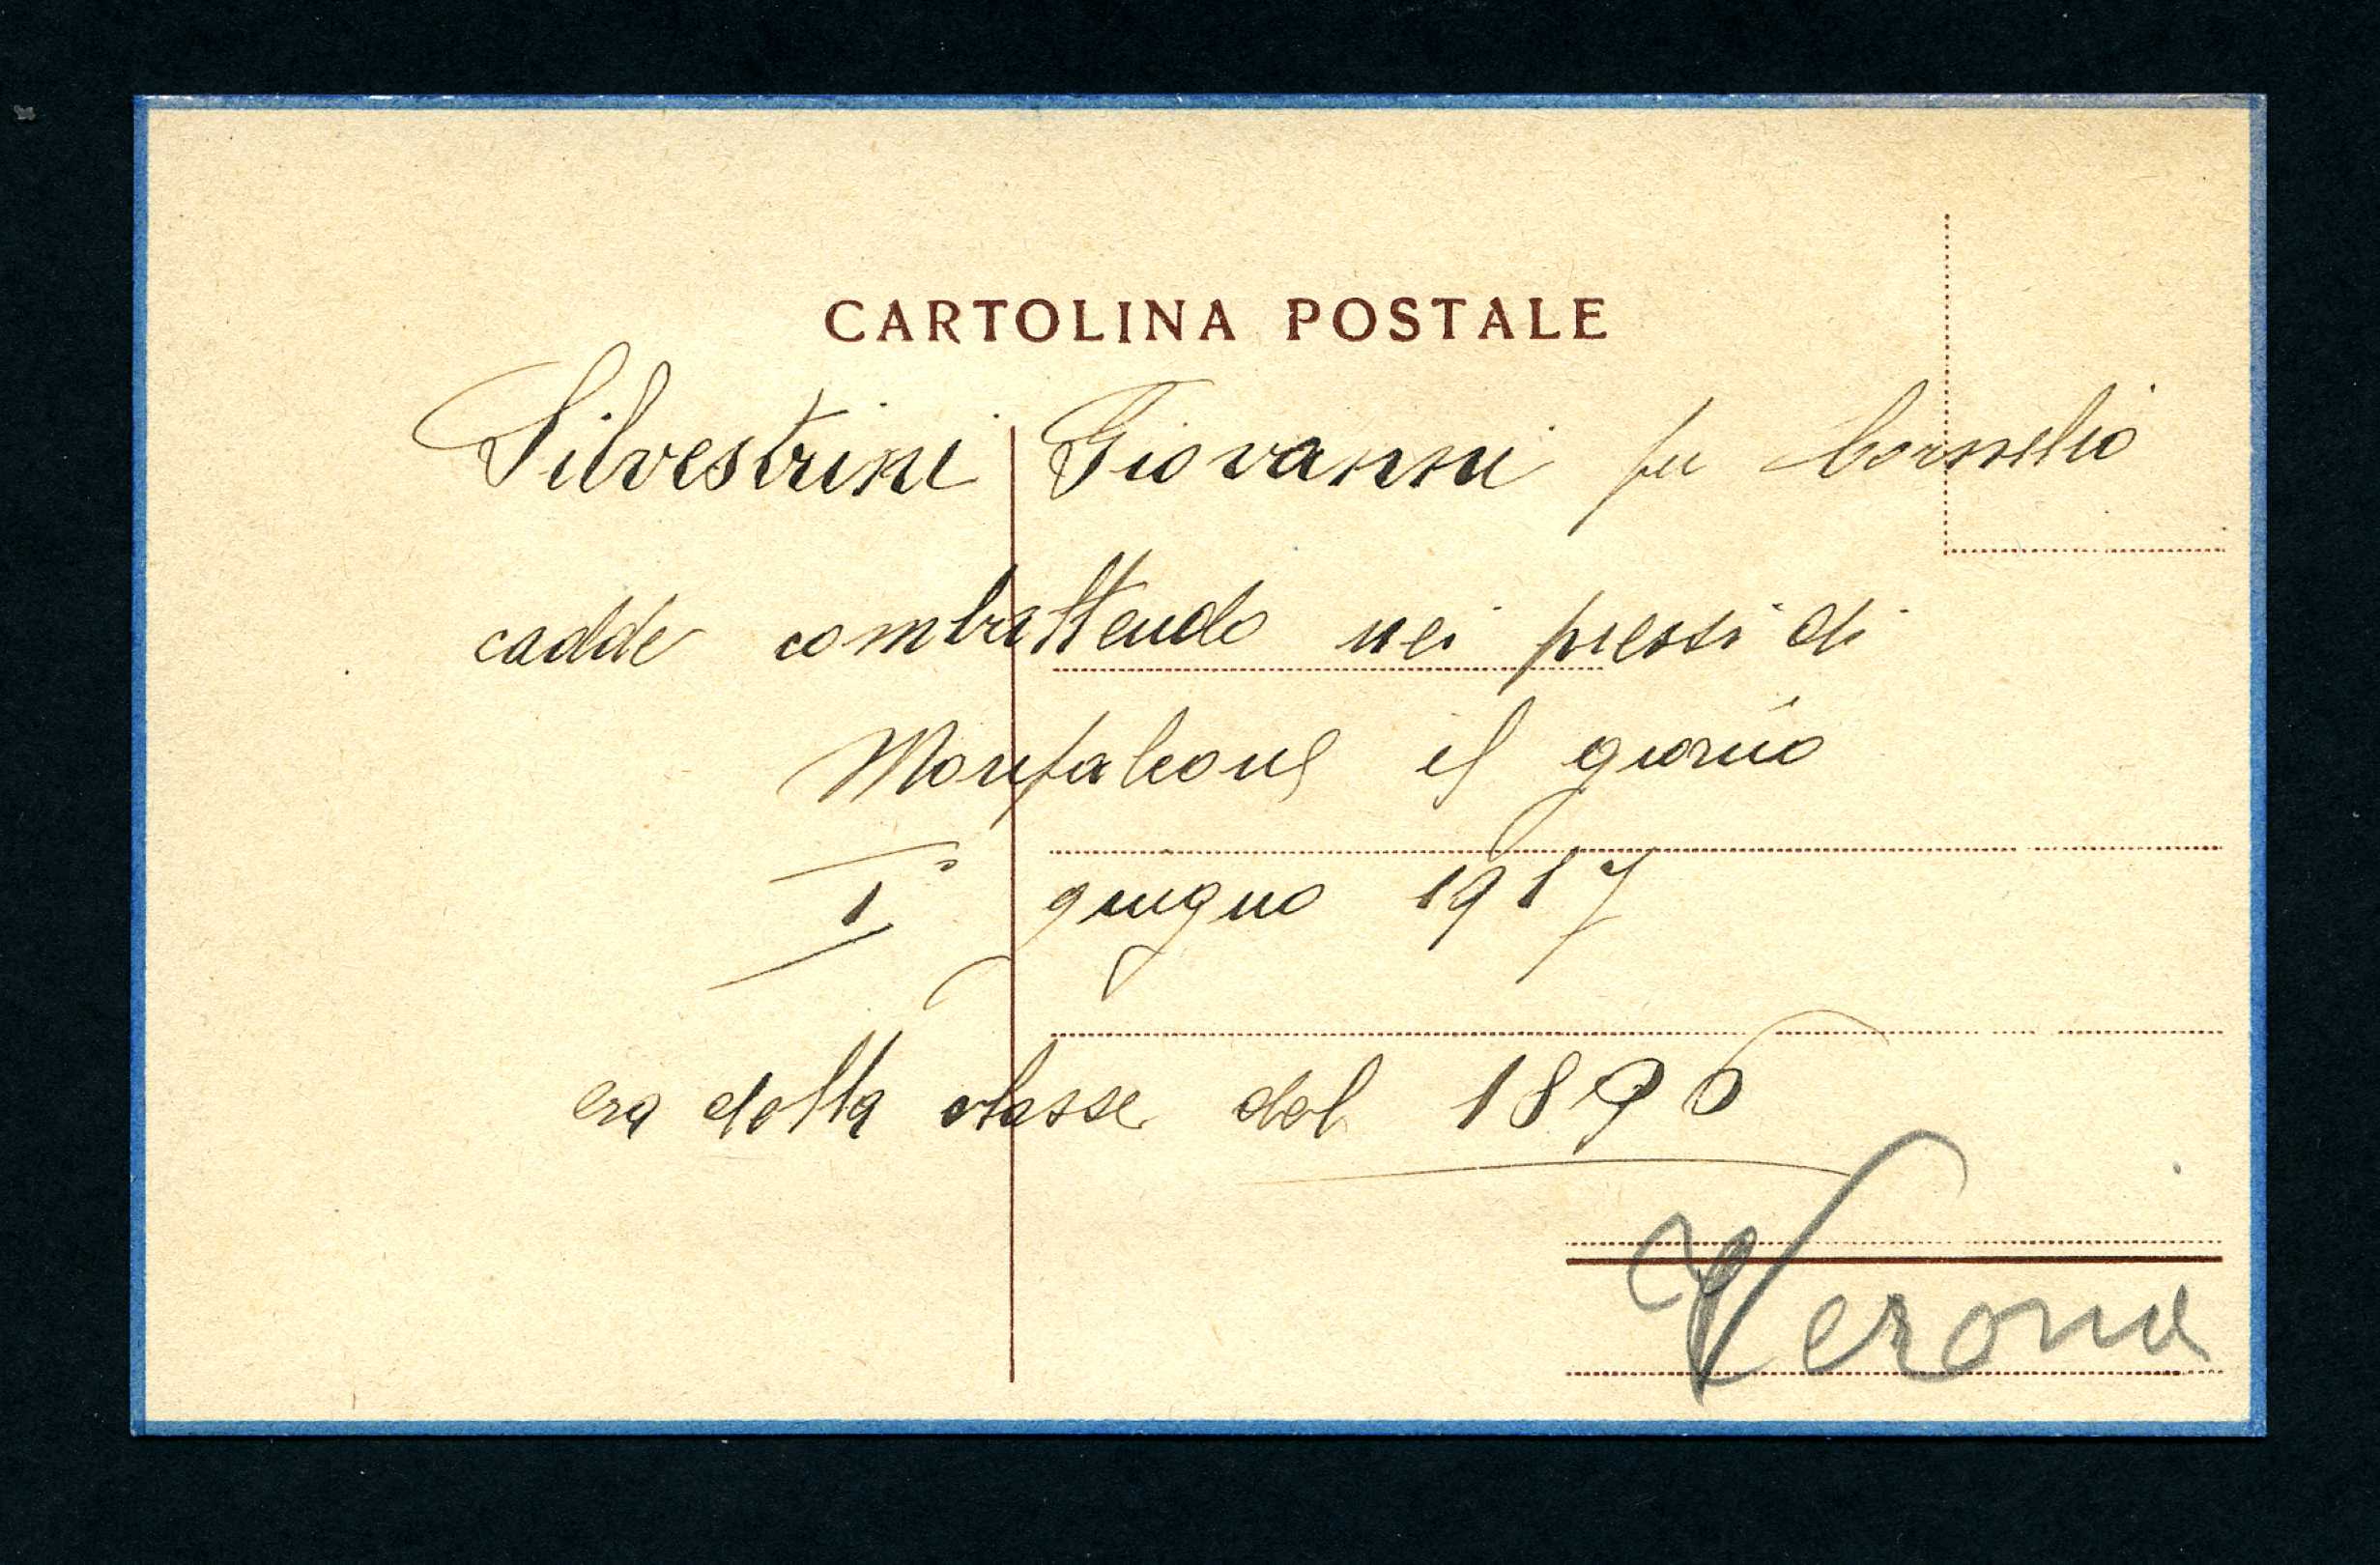 CARTOLINA POSTALE
Silvestrini Giovanni fu Cornelio
cadde combattendo nei pressi di
Monfalcone il giorno
I° giugno 1917
era della classe del 1896
Verona